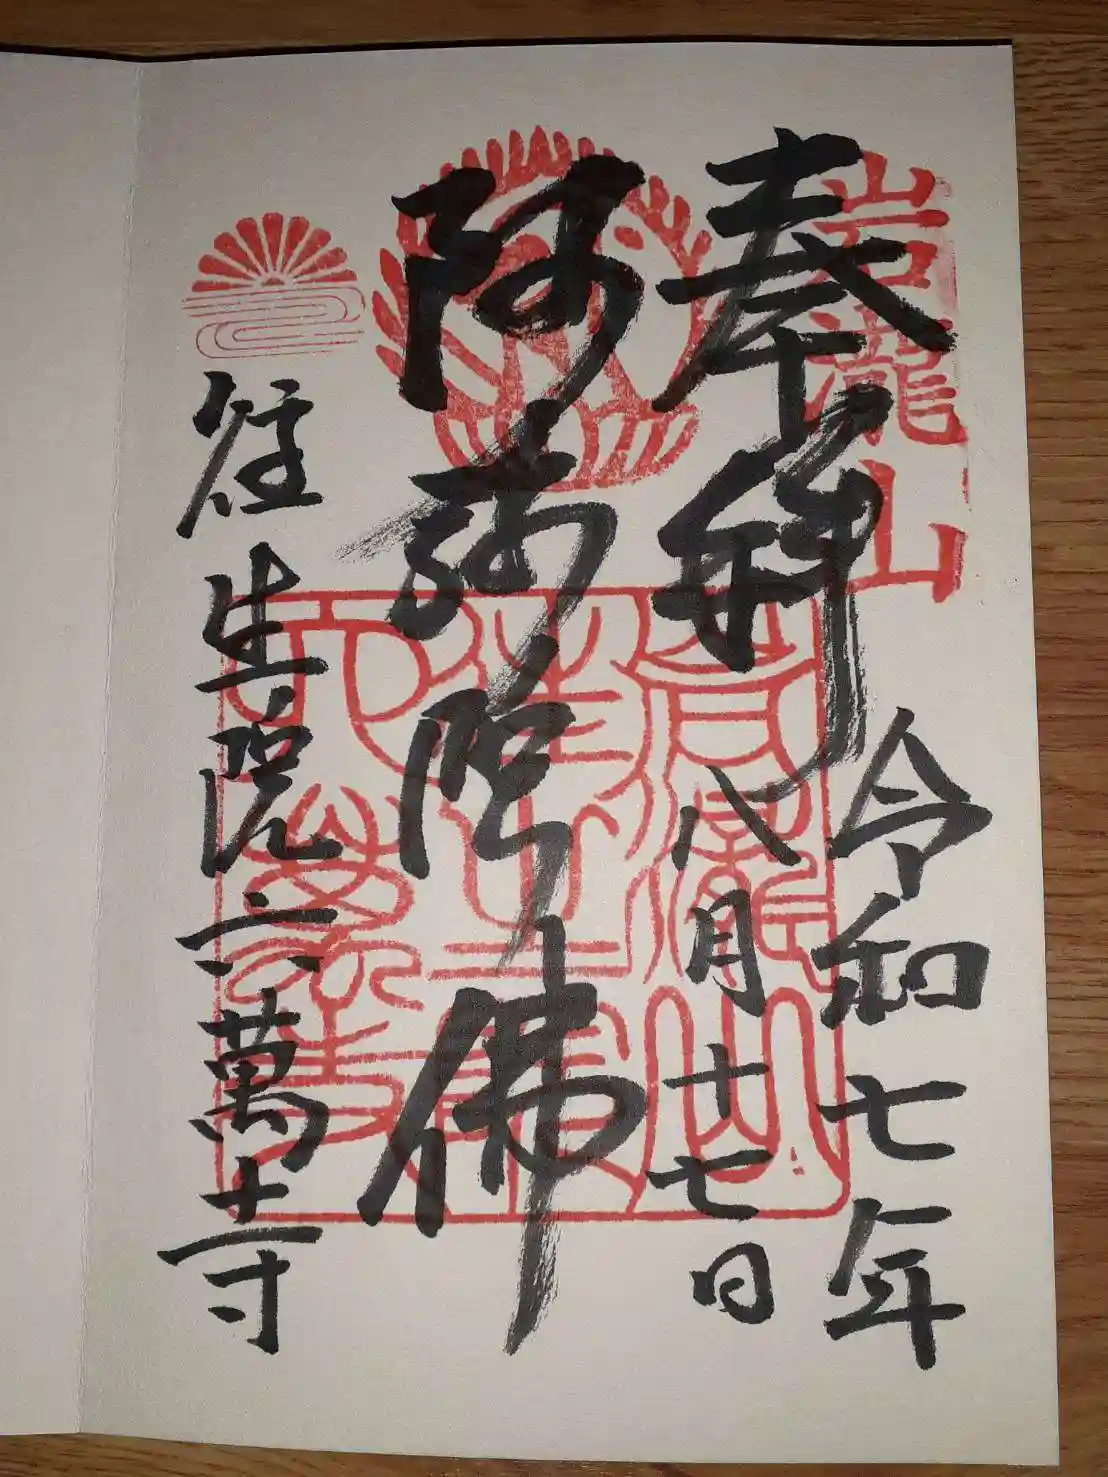 岩瀧山
奉拝
令和七年
八月十七日
阿弥陀佛
往生院六萬寺